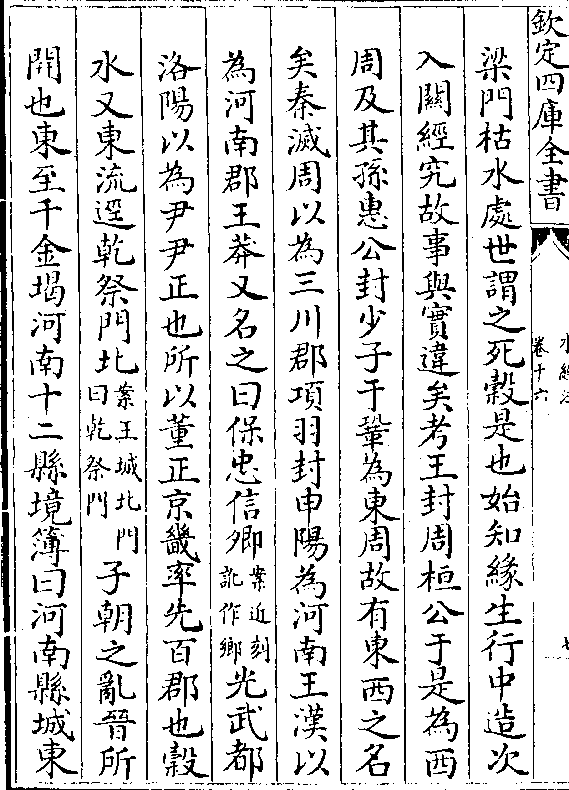 欽定四庫全書
水經注
卷十六
七
梁門枯水處世謂之死穀是也始知緣生行中造次
入關經究故事與實違矣考王封周桓公于是為西
周及其孫惠公封少子于鞏為東周故有東西之名
矣秦滅周以為三川郡項羽封申陽為河南王漢以
為河南郡王莽又名之曰保忠信卿案近刻訛作鄉光武都
洛陽以為尹尹正也所以董正京畿率先百郡也穀
水又東流逕乾祭門北案王城北門曰乾祭門子朝之亂晉所
開也東至千金堨河南十二縣境簿曰河南縣城東